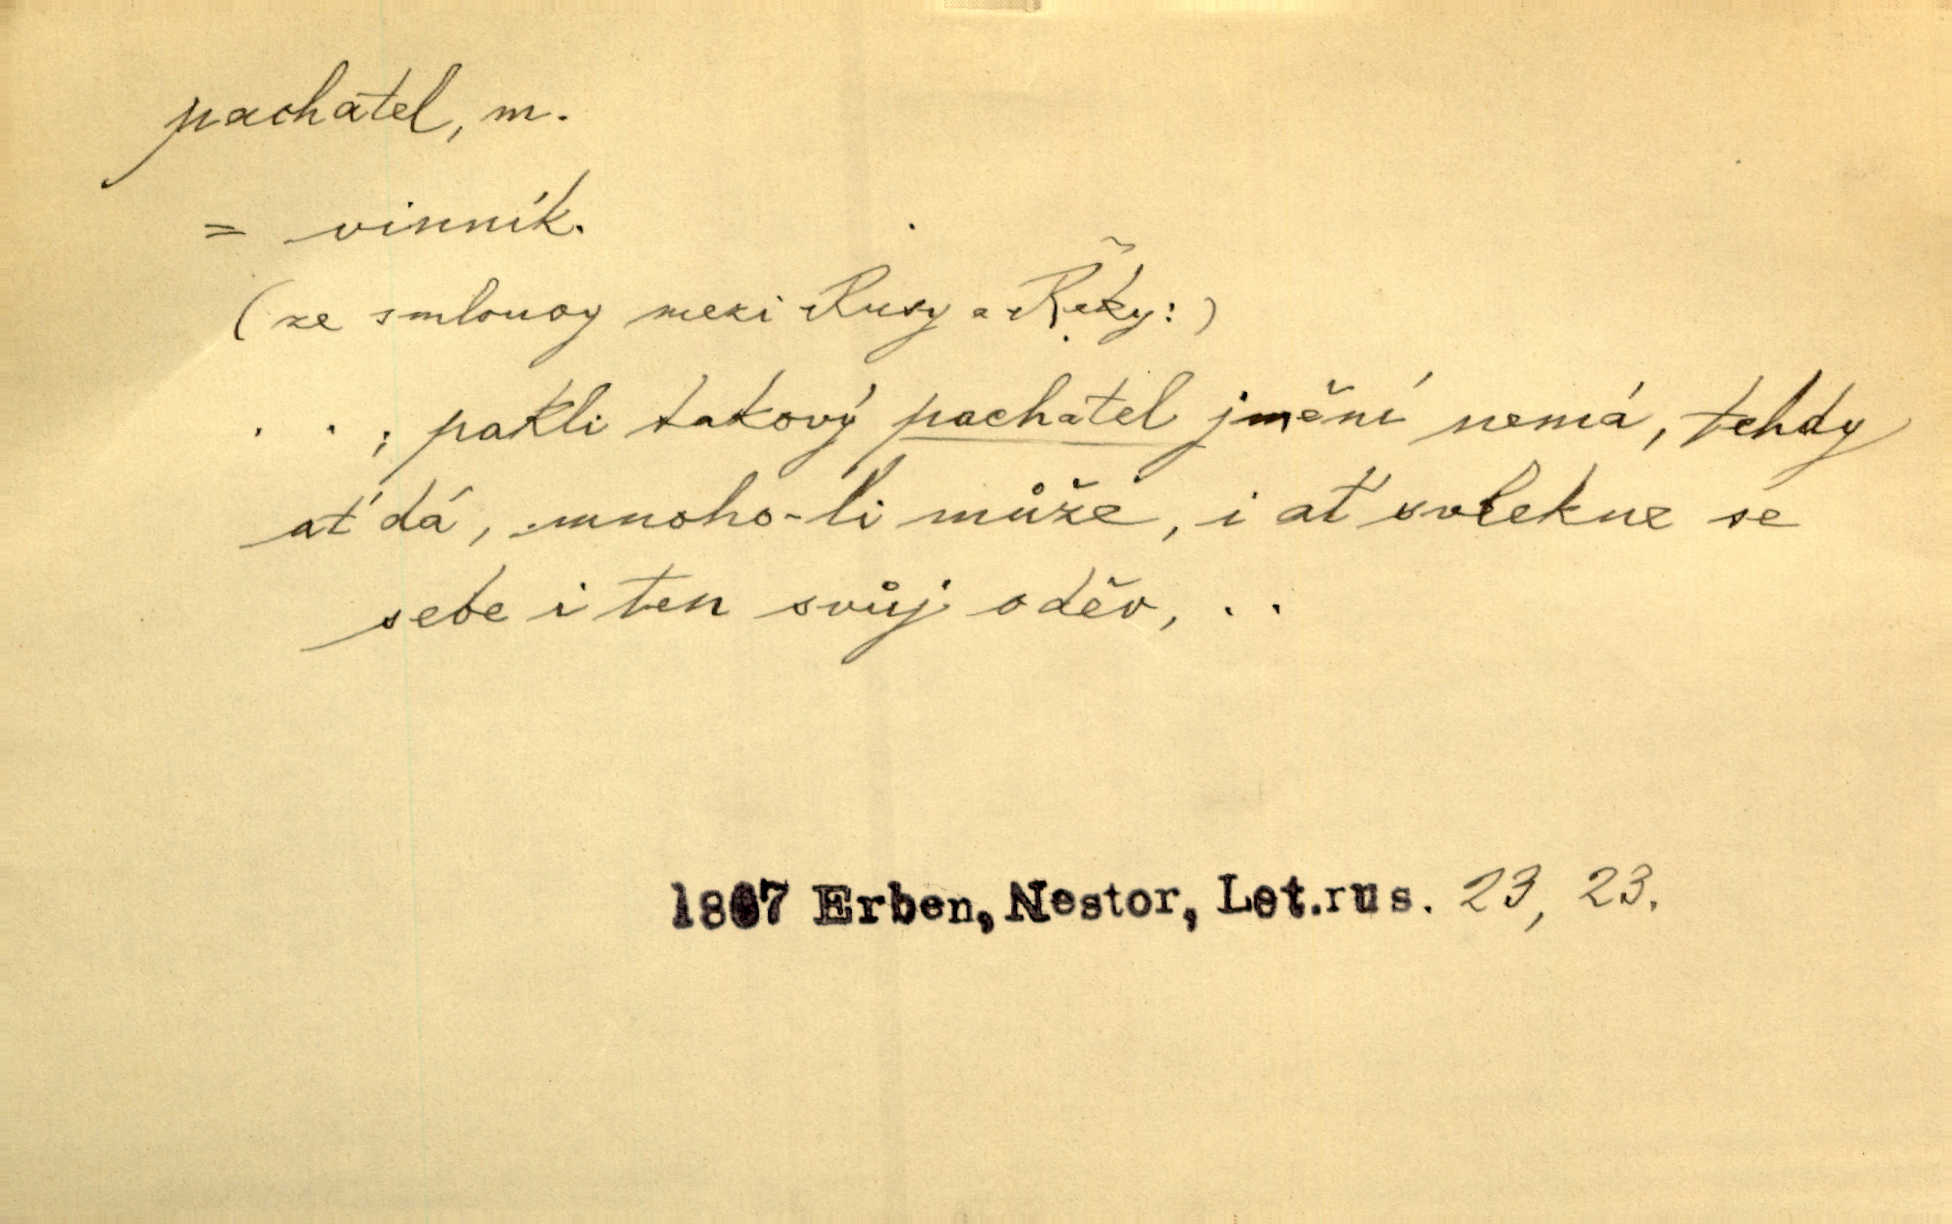 pachatel, m.
= vinník.
(ze smlouvy mezi Rusy a Řeky:)
. . ; pakli takový pachatel jmění nemá, tehdy
ať dá, mnoho-li může, i ať svlekne se
sebe i ten svůj oděv, . .
1867 Erben, Nestor, Let.rus. 23, 23.